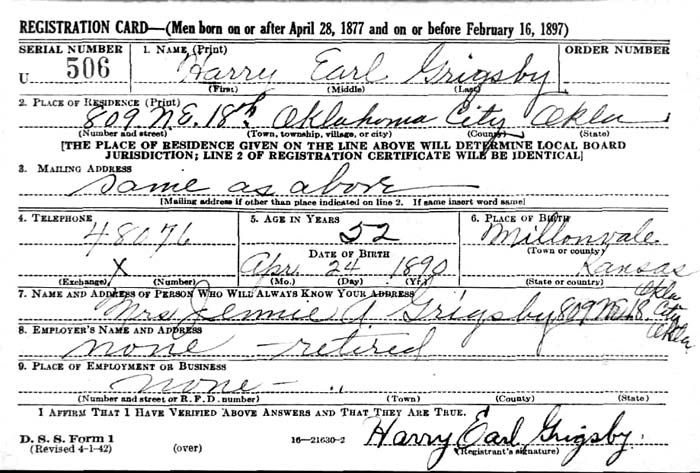 REGISTRATION CARD—(Men born on or after April 28, 1877 and on or before February 16, 1897)
SERIAL NUMBER 1. NAME (Print) ORDER NUMBER
U 506 Harry Earl Grigsby
(First) (Middle) (Last)
2. PLACE OF RESIDENCE (Print)
809 N.E. 18th Oklahoma City Okla
(Number and street) (Town, township, village, or city) (County) (State)
[THE PLACE OF RESIDENCE GIVEN ON THE LINE ABOVE WILL DETERMINE LOCAL BOARD
JURISDICTION; LINE 2 OF REGISTRATION CERTIFICATE WILL BE IDENTICAL]
3. MAILING ADDRESS
same as above
[Mailing address if other than place indicated on line 2. If same insert word same]
4. TELEPHONE 5. AGE IN YEARS 6. PLACE OF BIRTH
48076 52 Millonvale
DATE OF BIRTH (Town or county)
X Apr. 24 1890 Kansas
(Exchange) (Number) (Mo.) (Day) (Yr.) (State or country)
7. NAME AND ADDRESS OF PERSON WHO WILL ALWAYS KNOW YOUR ADDRESS
Mrs Jennie A. Grigsby 809 N.E. 18. Okla City Okla
8. EMPLOYER'S NAME AND ADDRESS
none - retired
9. PLACE OF EMPLOYMENT OR BUSINESS
none - "
(Number and street or R. F. D. number) (Town) (County) (State)
I AFFIRM THAT I HAVE VERIFIED ABOVE ANSWERS AND THAT THEY ARE TRUE.
D. S. S. Form 1
(Revised 4-1-42) (over) 16—21630-2 Harry Earl Grigsby.
(Registrant's signature)